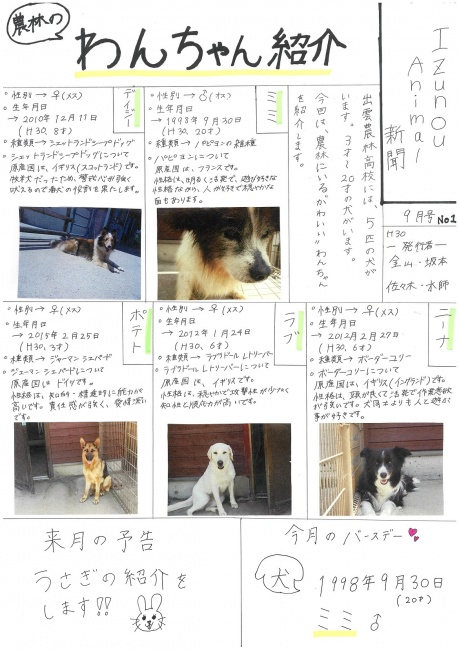 農林の
わんちゃん紹介
IZUNOU
Animal
新聞
9月号 No.1
H30
ー発行者ー
金山・坂本
佐々木・水師
出雲農林高校には、5匹の犬が
います。3才〜20才の犬がいます。
今回は、農林にいる"かわいい"わんちゃん
を紹介します。
ミミ
・性別→♂(オス)
・生年月日
→1998年9月30日
(H30、20才)
・種類→パピヨンの雑種
・パピヨンについて
原産国は、フランスです。
性格は、明るく活発で、遊び好きな
性格ながら、人が好きで穏やかな
面もあります。
デイジー
・性別→♀(メス)
・生年月日
→2010年12月11日
(H30、8才)
・種類→シェットランドシープドッグ
・シェットランドシープドッグについて
原産国は、イギリス(スコットランド)です。
牧羊犬だったため、警戒心が強く
吠えるので番犬の役割を果たします。
ニーナ
・性別→♀(メス)
・生年月日
→2012年2月27日
(H30、6才)
・種類→ボーダーコリー
・ボーダーコリーについて
原産国は、イギリス(イングランド)です。
性格は、頭が良くて活発で作業意欲
が強いです。犬同士よりも人と遊ぶ
事が好きです。
ラブ
・性別→♀(メス)
・生年月日
→2012年1月24日
(H30、6才)
・種類→ラブラドールレトリーバー
・ラブラドールレトリーバーについて
原産国は、イギリスです。
性格は、穏やかで攻撃性が少なく
知性と順応力が高いです。
ポテト
・性別→♀(メス)
・生年月日
→2015年2月25日
(H30、3才)
・種類→ジャーマンシェパード
・ジャーマンシェパードについて
原産国はドイツです。
性格は、知的・精神的に能力が
高いです。責任感が強く、愛情深い
です。
今月のバースデー
犬
1998年9月30日
(20才)
ミミ ♂
来月の予告
うさぎの紹介を
します!!